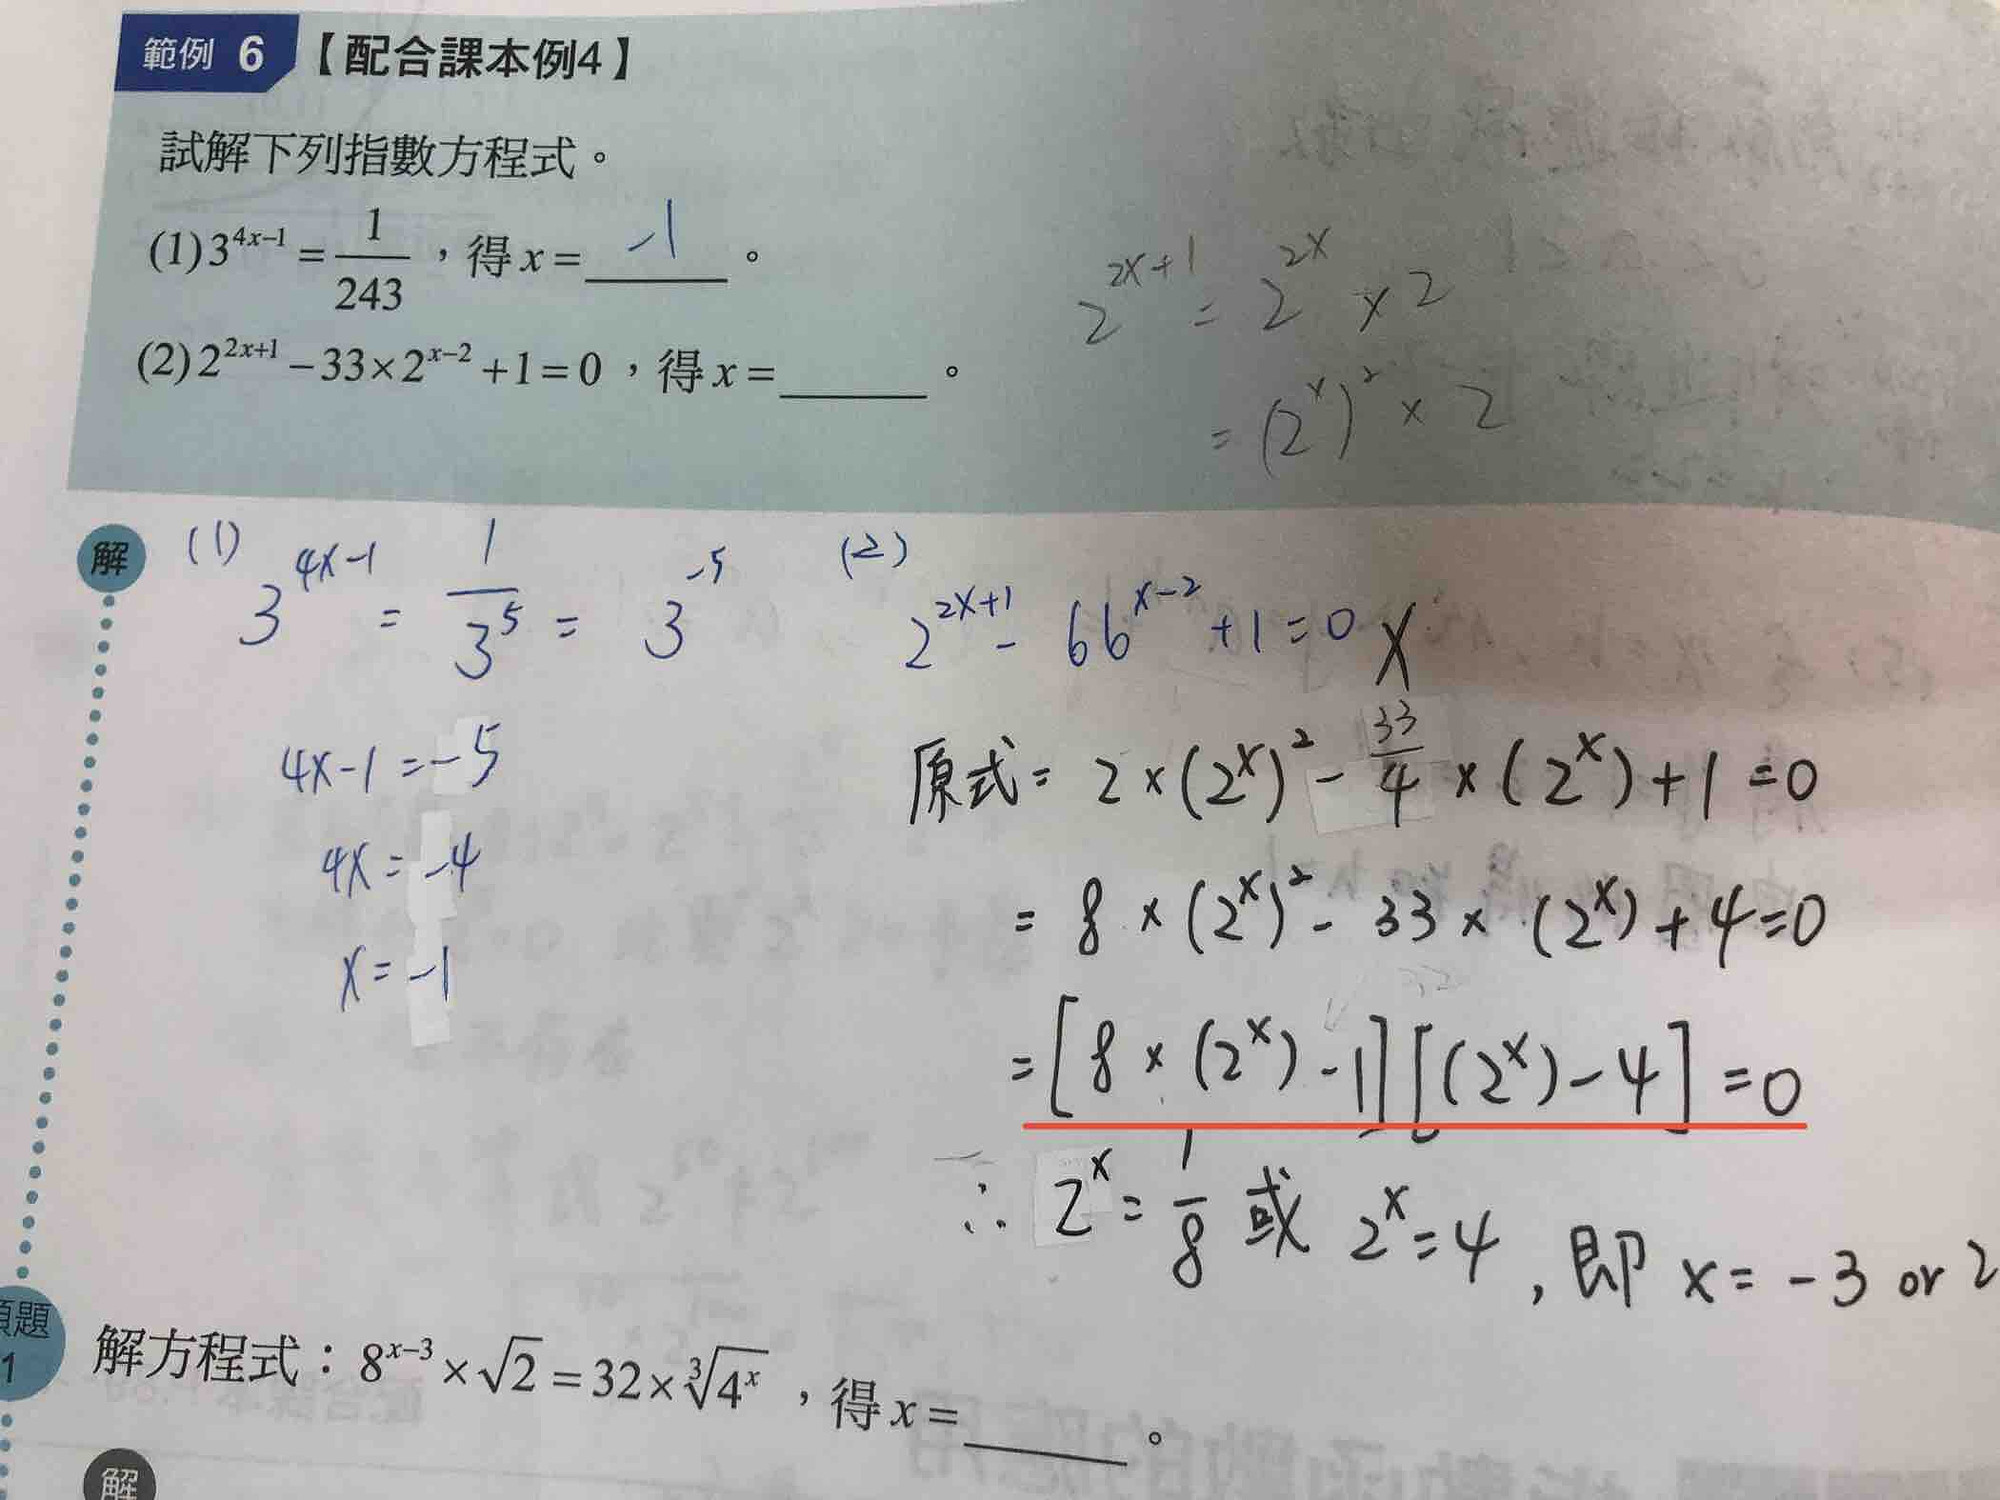 範例 6 【配合課本例4】
試解下列指數方程式。
(1) 3^{4x-1} = \frac{1}{243}，得 x = -1。
(2) 2^{2x+1} - 33×2^{x-2} + 1 = 0，得 x = ______。
2^{2x+1} = 2^{2x} × 2
= (2^x)^2 × 2
解
(1)
3^{4x-1} = \frac{1}{3^5} = 3^{-5}
4x-1 = -5
4x = -4
x = -1
(2)
2^{2x+1} - 66^{x-2} + 1 = 0 X
原式 = 2×(2^x)^2 - \frac{33}{4}×(2^x) + 1 = 0
= 8×(2^x)^2 - 33×(2^x) + 4 = 0
= [8×(2^x) - 1][(2^x) - 4] = 0
∴ 2^x = \frac{1}{8} 或 2^x = 4，即 x = -3 or 2
題
1
解方程式：8^{x-3} × \sqrt{2} = 32 × \sqrt[3]{4^x}，得 x = ______。
解